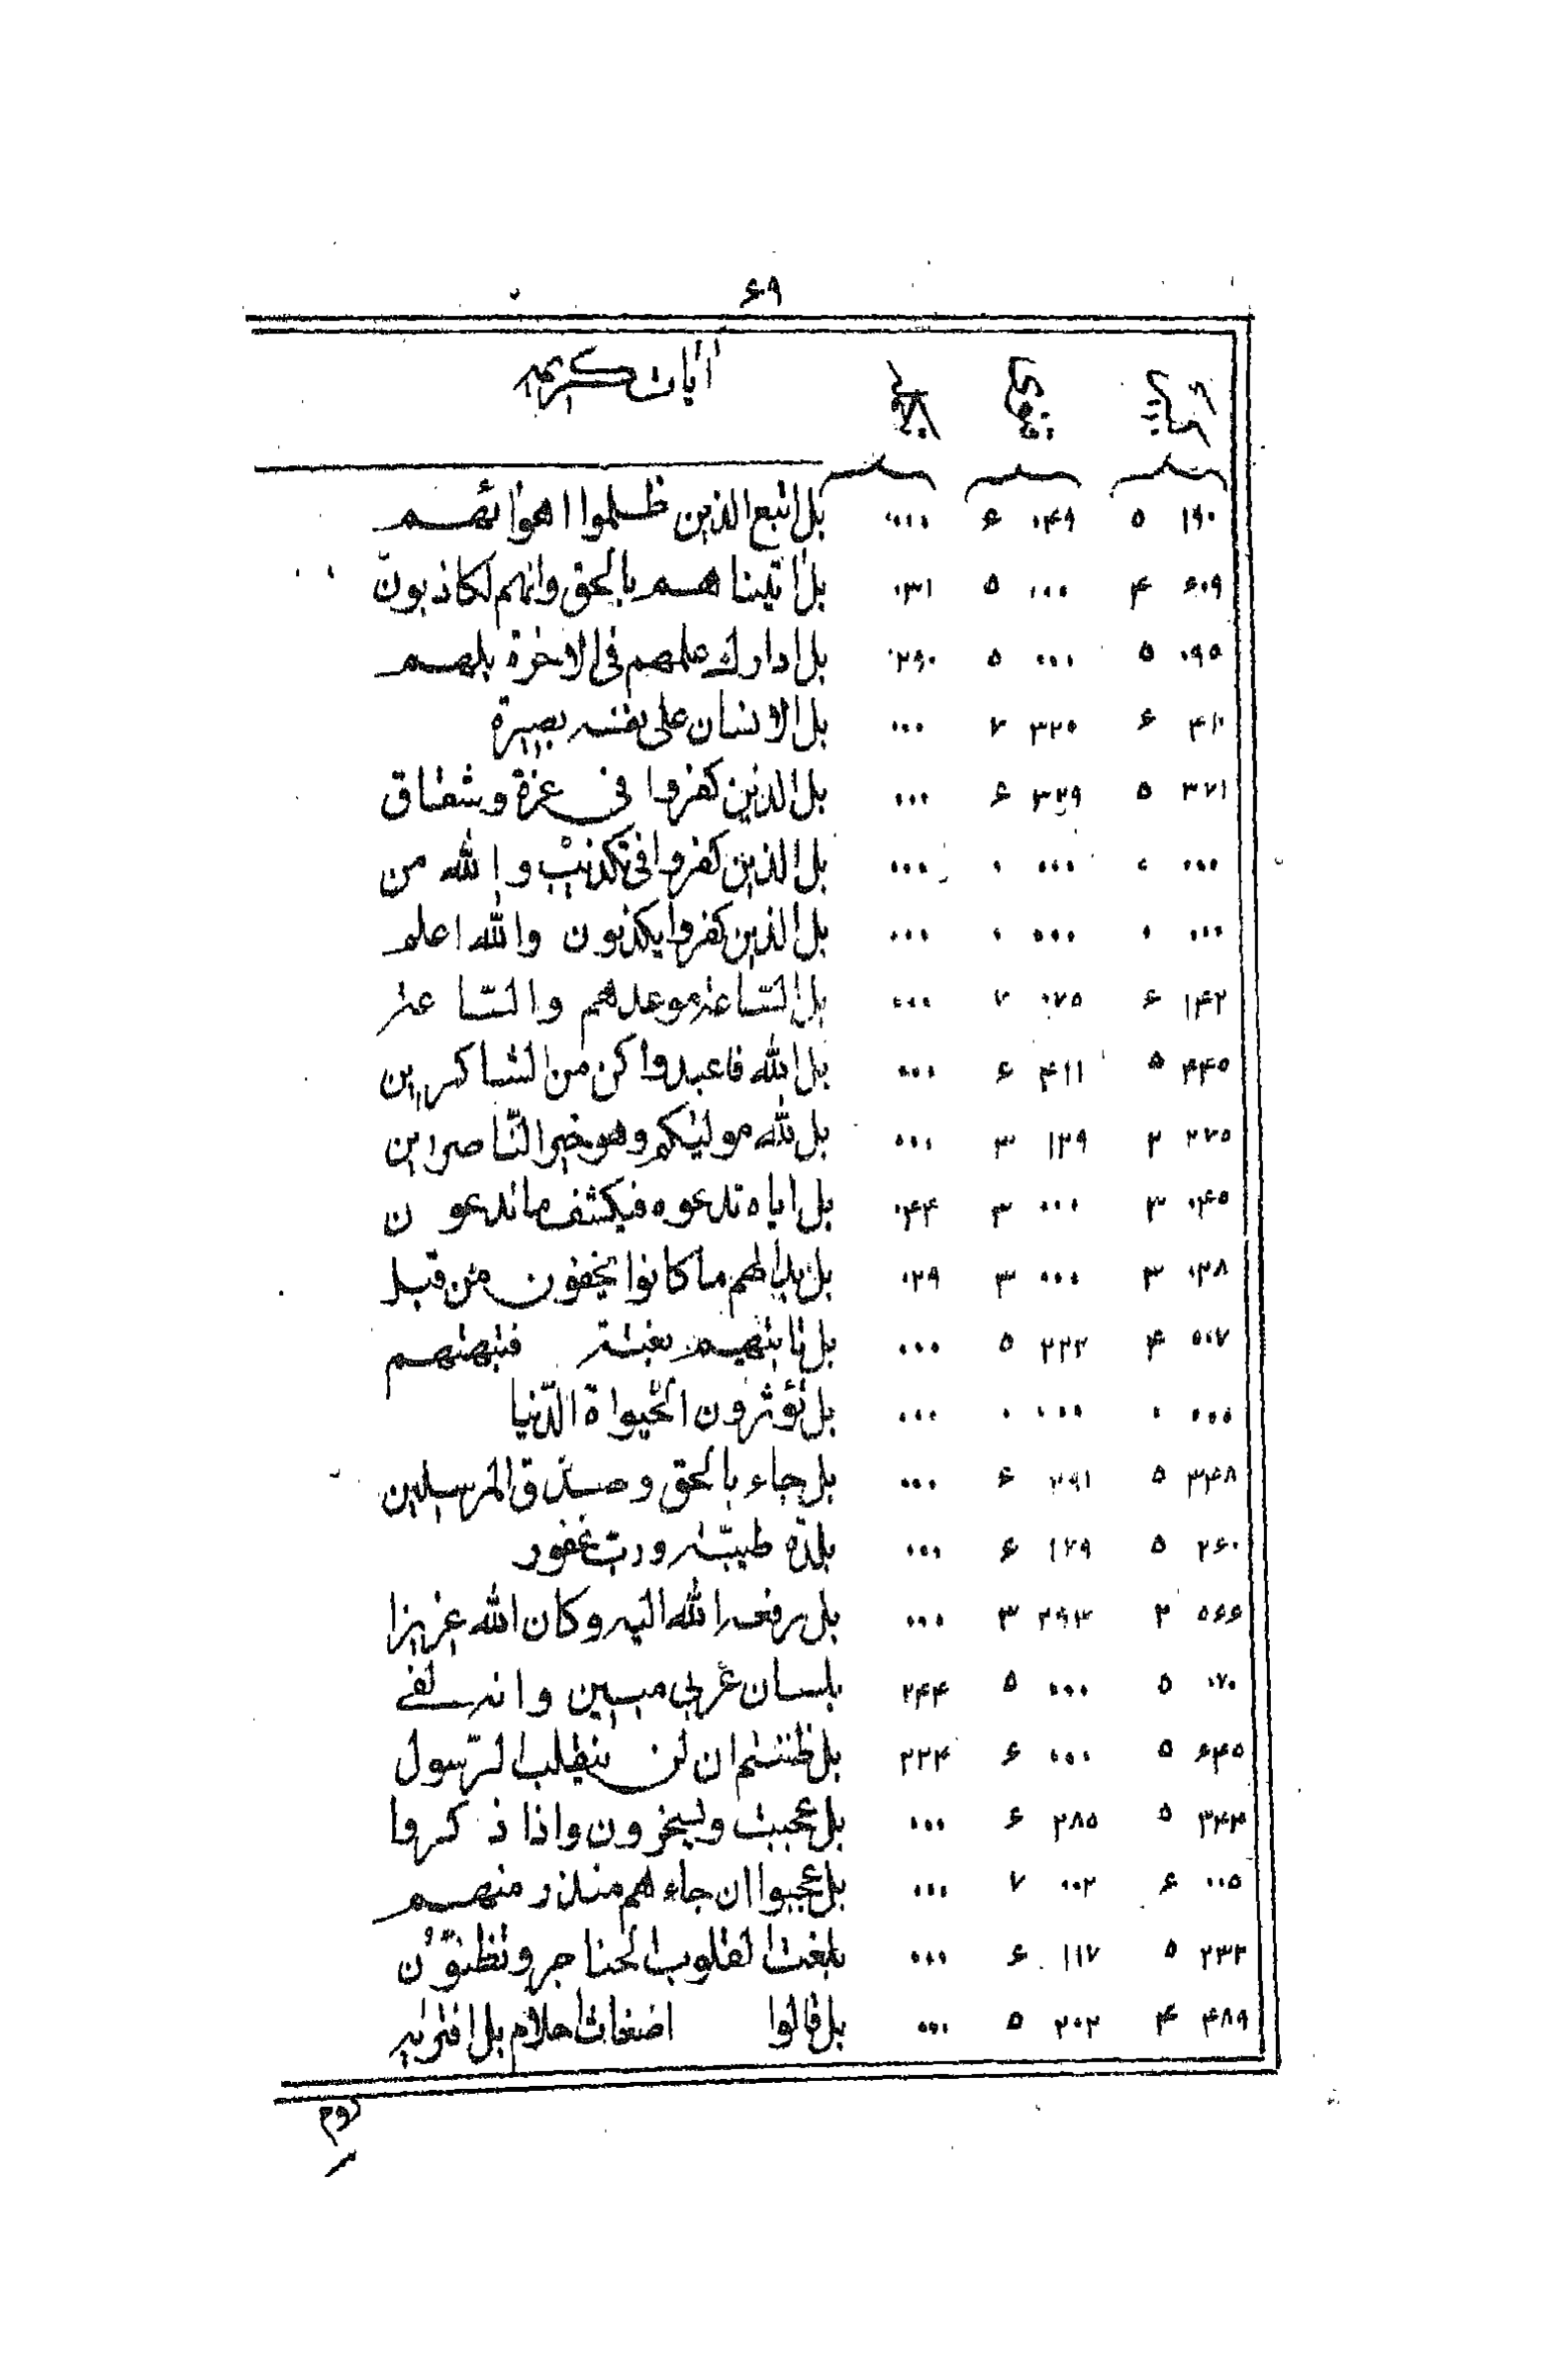 ۶۹
آیات کریمه
۱۹۰ ۵ ۰۴۹ ۶ ۰۰۰ بل اتبع الذین ظلموا اهوائهم
۶۰۹ ۴ ۰۰۰ ۵ ۰۳۱ بل اتیناهم بالحق وانهم لکاذبون
۰۹۵ ۵ ۰۰۰ ۵ ۲۹۰ بل ادارك علمهم فی الاخرة بل هم
۴۱۰ ۶ ۳۲۰ ۷ ۰۰۰ بل الانسان علی نفسه بصیرة
۳۷۱ ۵ ۳۲۹ ۶ ۰۰۰ بل الذین کفروا فی عزة وشقاق
۰۰۰ ۰ ۰۰۰ ۰ ۰۰۰ بل الذین کفروا فی تکذیب والله من
۰۰۰ ۰ ۰۰۰ ۰ ۰۰۰ بل الذین کفروا یکذبون والله اعلم
۱۴۲ ۶ ۰۷۵ ۷ ۰۰۰ بل الساعة موعدهم والساعة
۴۴۵ ۵ ۴۱۱ ۶ ۰۰۰ بل الله فاعبد وکن من الشاکرین
۲۷۵ ۲ ۱۲۹ ۳ ۰۰۰ بل الله مولیکم وهو خیر الناصرین
۰۴۵ ۳ ۰۰۰ ۳ ۰۴۴ بل ایاه تدعوه فیکشف ما تدعون
۰۳۸ ۳ ۰۰۰ ۳ ۰۲۹ بل بدالهم ما کانوا یخفون من قبل
۵۰۷ ۴ ۲۲۲ ۵ ۰۰۰ بل تاتیهم بغتة فتبهتهم
۰۰۰ ۰ ۰۰۰ ۰ ۰۰۰ بل تؤثرون الحیواة الدّنیا
۳۴۸ ۵ ۲۹۱ ۶ ۰۰۰ بل جاء بالحق وصدّق المرسلین
۲۶۰ ۵ ۱۷۹ ۶ ۰۰۰ بلدة طیبّة وربّ غفور
۵۶۶ ۲ ۲۹۳ ۳ ۰۰۰ بل رفعه الله الیه وکان الله عزیزا
۰۷۰ ۵ ۰۰۰ ۵ ۲۴۴ بلسان عربی مبین وانه لفی
۶۴۵ ۵ ۰۰۰ ۶ ۲۲۴ بل ظننتم ان لن ینقلب الرّسول
۳۴۳ ۵ ۲۸۵ ۶ ۰۰۰ بل عجبت ویسخرون واذا ذکروا
۰۰۵ ۶ ۰۰۲ ۷ ۰۰۰ بل عجبوا ان جاءهم منذر منهم
۲۳۲ ۵ ۱۱۷ ۶ ۰۰۰ بلغت القلوب الحناجر وتظنوّن
۴۸۹ ۴ ۲۰۲ ۵ ۰۰۰ بل قالوا اضغاث احلام بل افتراه